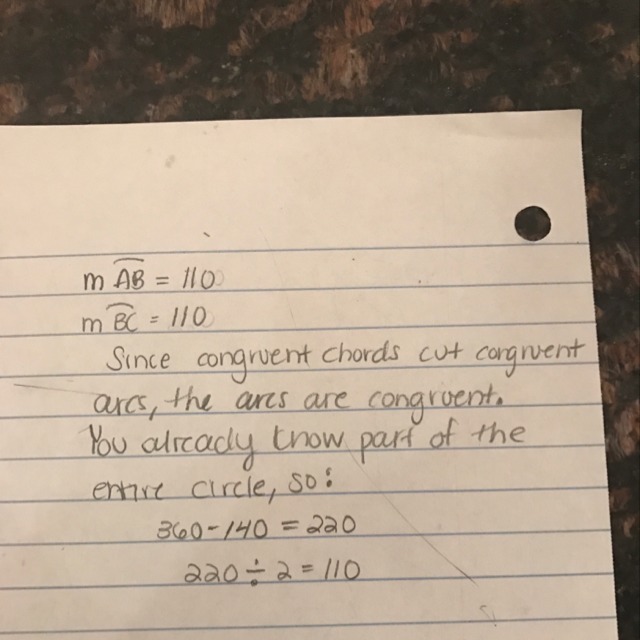 m AB = 110
m BC = 110
Since congruent chords cut congruent
arcs, the arcs are congruent.
You already know part of the
entire circle, so:
360-140 = 220
220 ÷ 2 = 110